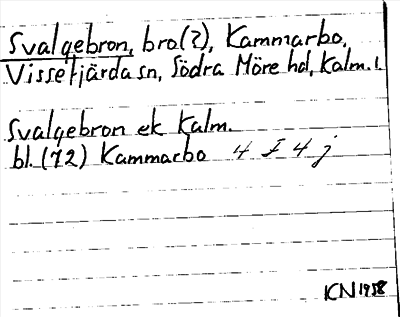 Svalgebron, bro(?), Kammarbo,
Vissefjärda sn, Södra Möre hd, Kalm.l.
Svalgebron ek Kalm.
bl. (72) Kammarbo 4 I 4 j
KN 1958